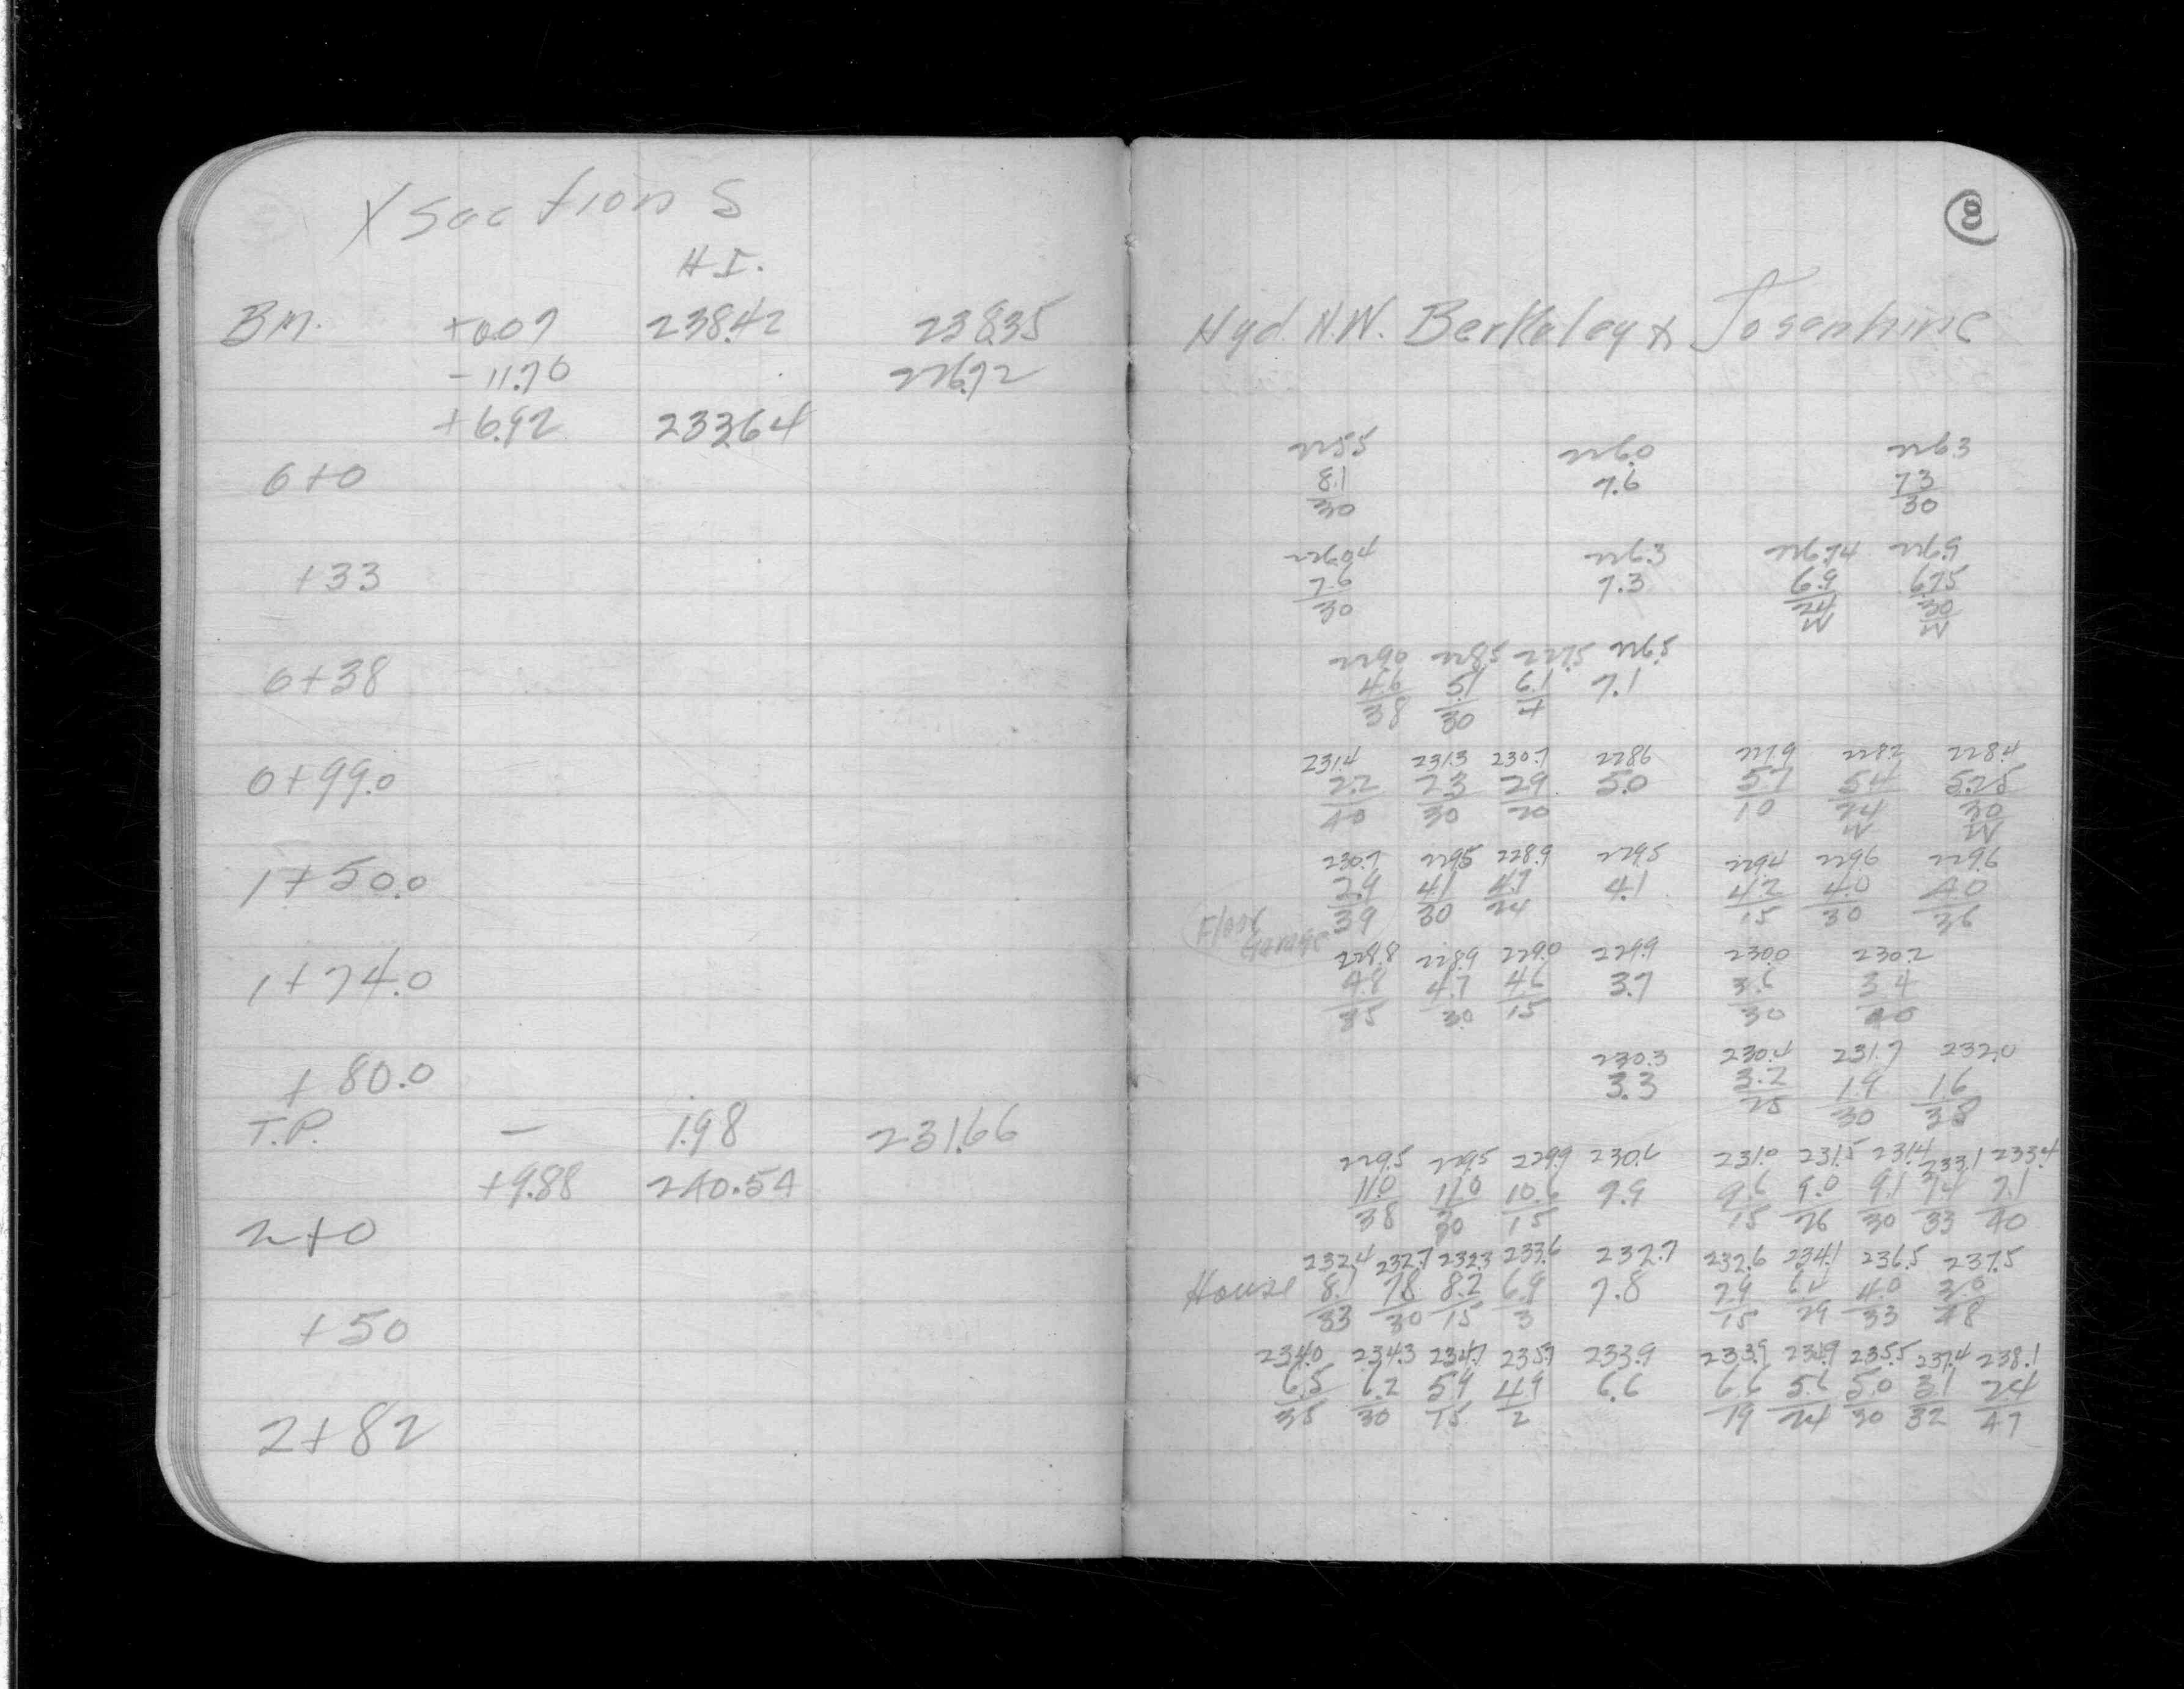 X Sections
H.I.
BM. +0.07 238.42 238.35
-11.70 226.72
+6.92 233.64
0+0
+33
0+38
0+99.0
1+50.0
1+74.0
+80.0
T.P. - 1.98 231.66
+9.88 240.54
2+0
+50
2+82
8
Hyd. N.W. Berkeley & Josephine
225.5 226.0 226.3
8.1 7.6 7.3
30 30
226.04 226.3 226.74 226.9
7.6 7.3 6.9 6.75
30 24 30
W W
229.0 228.5 227.5 226.5
4.6 5.1 6.1 7.1
38 30 4
231.4 231.3 230.7 228.6 227.9 228.2 228.4
2.2 2.3 2.9 5.0 5.7 5.4 5.25
40 30 20 10 24 30
W W
230.7 229.5 228.9 229.5 229.4 229.6 229.6
2.9 4.1 4.7 4.1 4.2 4.0 4.0
39 30 24 15 30 36
Floor Garage
228.8 228.9 229.0 229.9 230.0 230.2
4.8 4.7 4.6 3.7 3.6 3.4
35 30 15 30 40
230.3 230.4 231.7 232.0
3.3 3.2 1.9 1.6
25 30 38
229.5 229.5 229.9 230.6 231.0 231.5 231.4 233.1 233.4
11.0 11.0 10.6 9.9 9.6 9.0 9.1 7.4 7.1
38 30 15 15 26 30 33 40
232.4 232.7 232.3 233.6 232.7 232.6 234.1 236.5 237.5
House 8.1 7.8 8.2 6.9 7.8 7.9 6.4 4.0 3.0
33 30 15 3 15 29 33 48
234.0 234.3 234.7 235.7 233.9 233.9 234.9 235.5 237.4 238.1
6.5 6.2 5.9 4.9 6.6 6.6 5.6 5.0 3.1 2.4
35 30 15 2 19 24 30 32 47